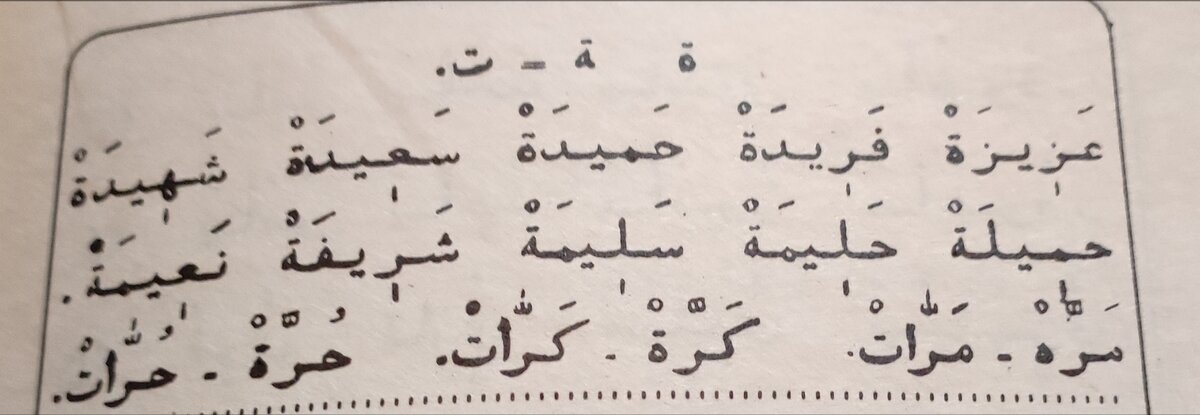 ة ـة = ت.
عَزِيزَةْ فَرِيدَةْ حَمِيدَةْ سَعِيدَةْ شَهِيدَةْ
حمِيلَةْ حَلِيمَةْ سَلِيمَةْ شَرِيفَةْ نَعِيمَةْ.
مَرَّهْ - مَرَّاتْ. كَرَّةْ - كَرَّاتْ. حُرَّةْ - حُرَّاتْ.